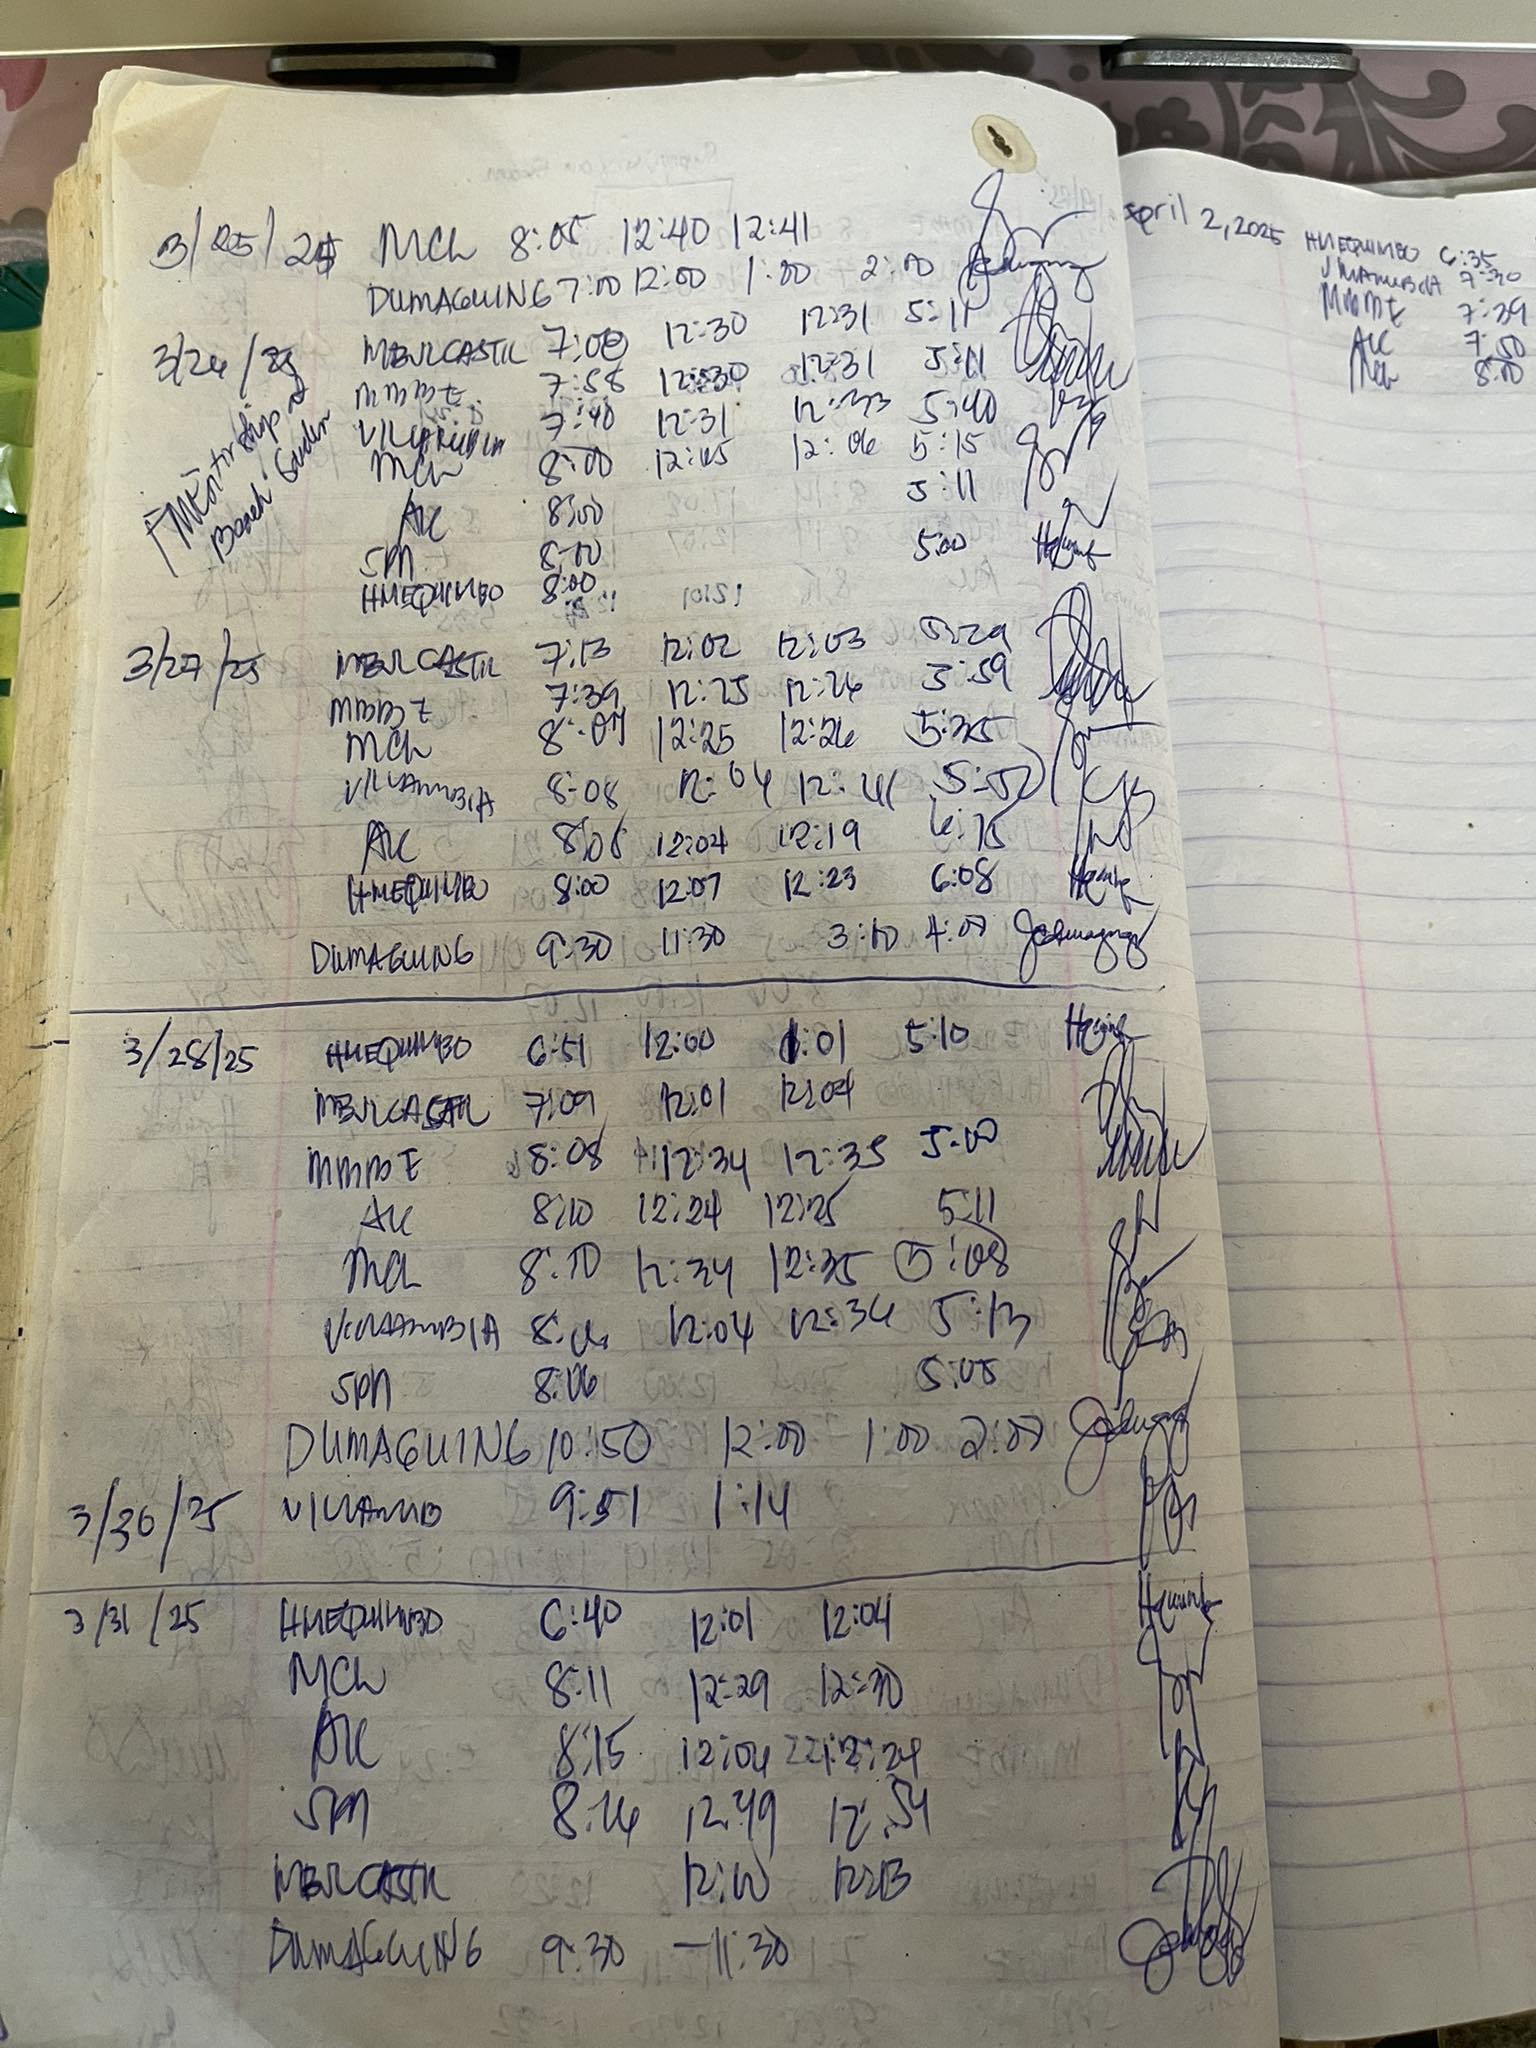 3/25/25 MCL 8:05 12:40 12:41
DUMAGUING 7:00 12:00 1:00 2:00
3/26/25 MBVRCASTIL 7:00 12:30 12:31 5:11
MMBBE 7:58 12:30 12:31 5:11
7:40 12:31 12:33 5:40
MCL 8:00 12:45 5:15
[Mentorship at
Beach Garden
AK 8:00 5:11
SPM 8:00 5:00
HMEQUIMBO 8:00
3/27/25 MBVRCASTIL 7:13 12:02 12:03
MMBBE 7:39 12:25 12:26 5:59
MCL 12:25 12:26 5:35
8:08 12:04 12:41 5:02
AK 8:05 12:04 12:19
HMEQUIMBO 8:00 12:07 12:23 6:08
DUMAGUING 9:30 11:30 3:10 4:00
3/28/25 HMEQUIMBO 6:51 12:00 1:01 5:10
MBVRCASTIL 7:09 12:01 12:04
MMBBE 8:08 12:34 12:35 5:00
AK 8:10 12:24 12:25 5:11
MCL 8:10 12:34 12:35 5:08
12:04 12:34 5:13
SPM 8:06 5:05
DUMAGUING 10:50 12:00 1:00 2:00
3/30/25 9:51 1:14
3/31/25 HMEQUIMBO 6:40 12:01 12:04
MCL 8:11 12:29 12:30
AK 8:15 12:04 12:24
SPM 8:26 12:49 12:54
MBVRCASTIL 12:10 12:13
DUMAGUING 9:30 - 11:30
April 2, 2025 HMEQUIMBO 6:35
7:30
MMBBE 7:39
AK 7:50
MCL 8:00